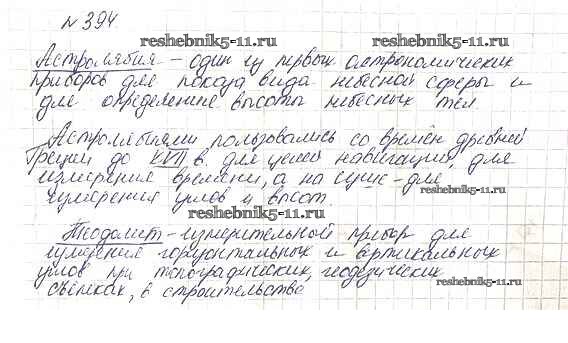 № 394
reshebnik5-11.ru
Астролябия - один из первых астрономических
приборов для показа вида небесной сферы и
для определение высоты небесных тел.
Астролябиями пользовались со времён древней
Греции до XVII в. для целей навигации, для
измерения времени, а на суше - для
reshebnik5-11.ru
измерения углов и высот.
reshebnik5-11.ru
Теодолит - измерительный прибор для
измерения горизонтальных и вертикальных
углов при топографических, геодезических
reshebnik5-11.ru
съёмках, в строительстве